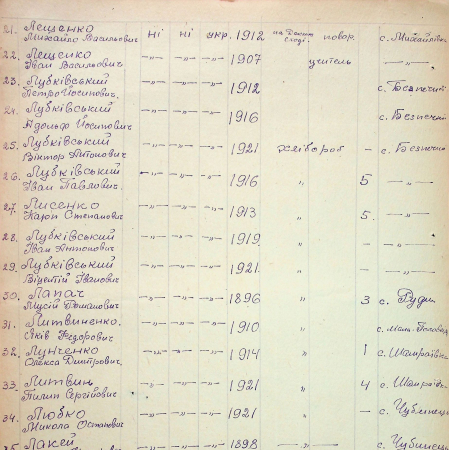 21. Лещенко
Михайло Васильович ні ні укр. 1912 на Далек. сході. повар. с. Михайлівка
22. Лещенко
Іван Васильович —„— —„— —„— 1907 учитель —„—
23. Лубківський
Петро Йосипович. —„— —„— —„— 1912 с. Безпечний
24. Лубківський
Адольф Йосипович —„— —„— —„— 1916 с. Безпечний
25. Лубківський
Віктор Антонович —„— —„— —„— 1921 хлібороб – с. Безпечна
26. Лубківський
Іван Павлович. —„— —„— —„— 1916 „ 5 —„—
27. Лисенко
Карон Степанович —„— —„— —„— 1913 „ 5. —„—
28. Лубківський
Іван Антонович —„— —„— —„— 1919 „ – —„—
29. Лубківський
Вікентій Іванович —„— —„— —„— 1921. „ – —„—
30. Лапач
Мусій Романович —„— —„— —„— 1896 „ 3 с. Рудня
31. Литвиненко.
Яків Федорович —„— —„— —„— 1910 „ с.
32. Лунченко
Олекса Дмитрович —„— —„— —„— 1914 „ 1 с. Шамраївка
33. Литвин
Пилип Сергійович —„— —„— —„— 1921 „ 4 с. Шамраївка
34. Любко
Микола Остапович —„— —„— —„— 1921 „ – с. Чубинець
35. Лакей —„— —„— —„— 1898 —„— с. Чубинець